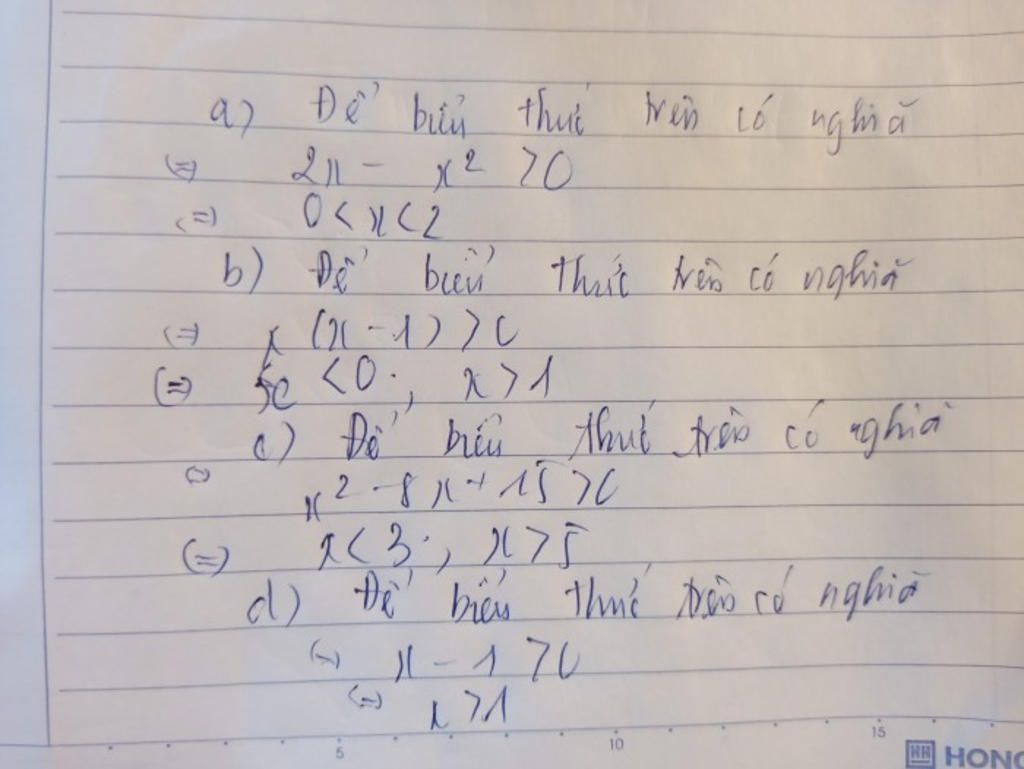 a) Để biểu thức trên có nghĩa
(=) 2x - x² >0
(=) 0 < x < 2
b) Để biểu thức trên có nghĩa
(=) x (x - 1) > 0
(=) x < 0 ; x > 1
c) Để biểu thức trên có nghĩa
(=) x² - 8x + 15 > 0
(=) x < 3 ; x > 5
d) Để biểu thức trên có nghĩa
(=) x - 1 > 0
(=) x > 1
5 10 15
HH HONG